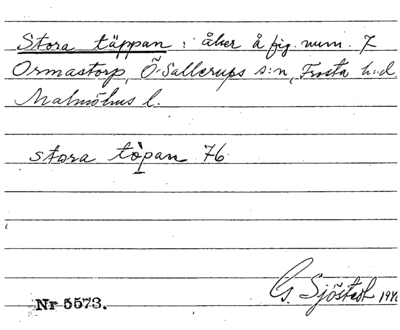 Stora täppan : åker å fig. num. 7
Ormastorp, Ö. Sallerups s:n, Frosta h:d
Malmöhus l.
stora tòpan 76
Nr 5573.
G. Sjöstedt